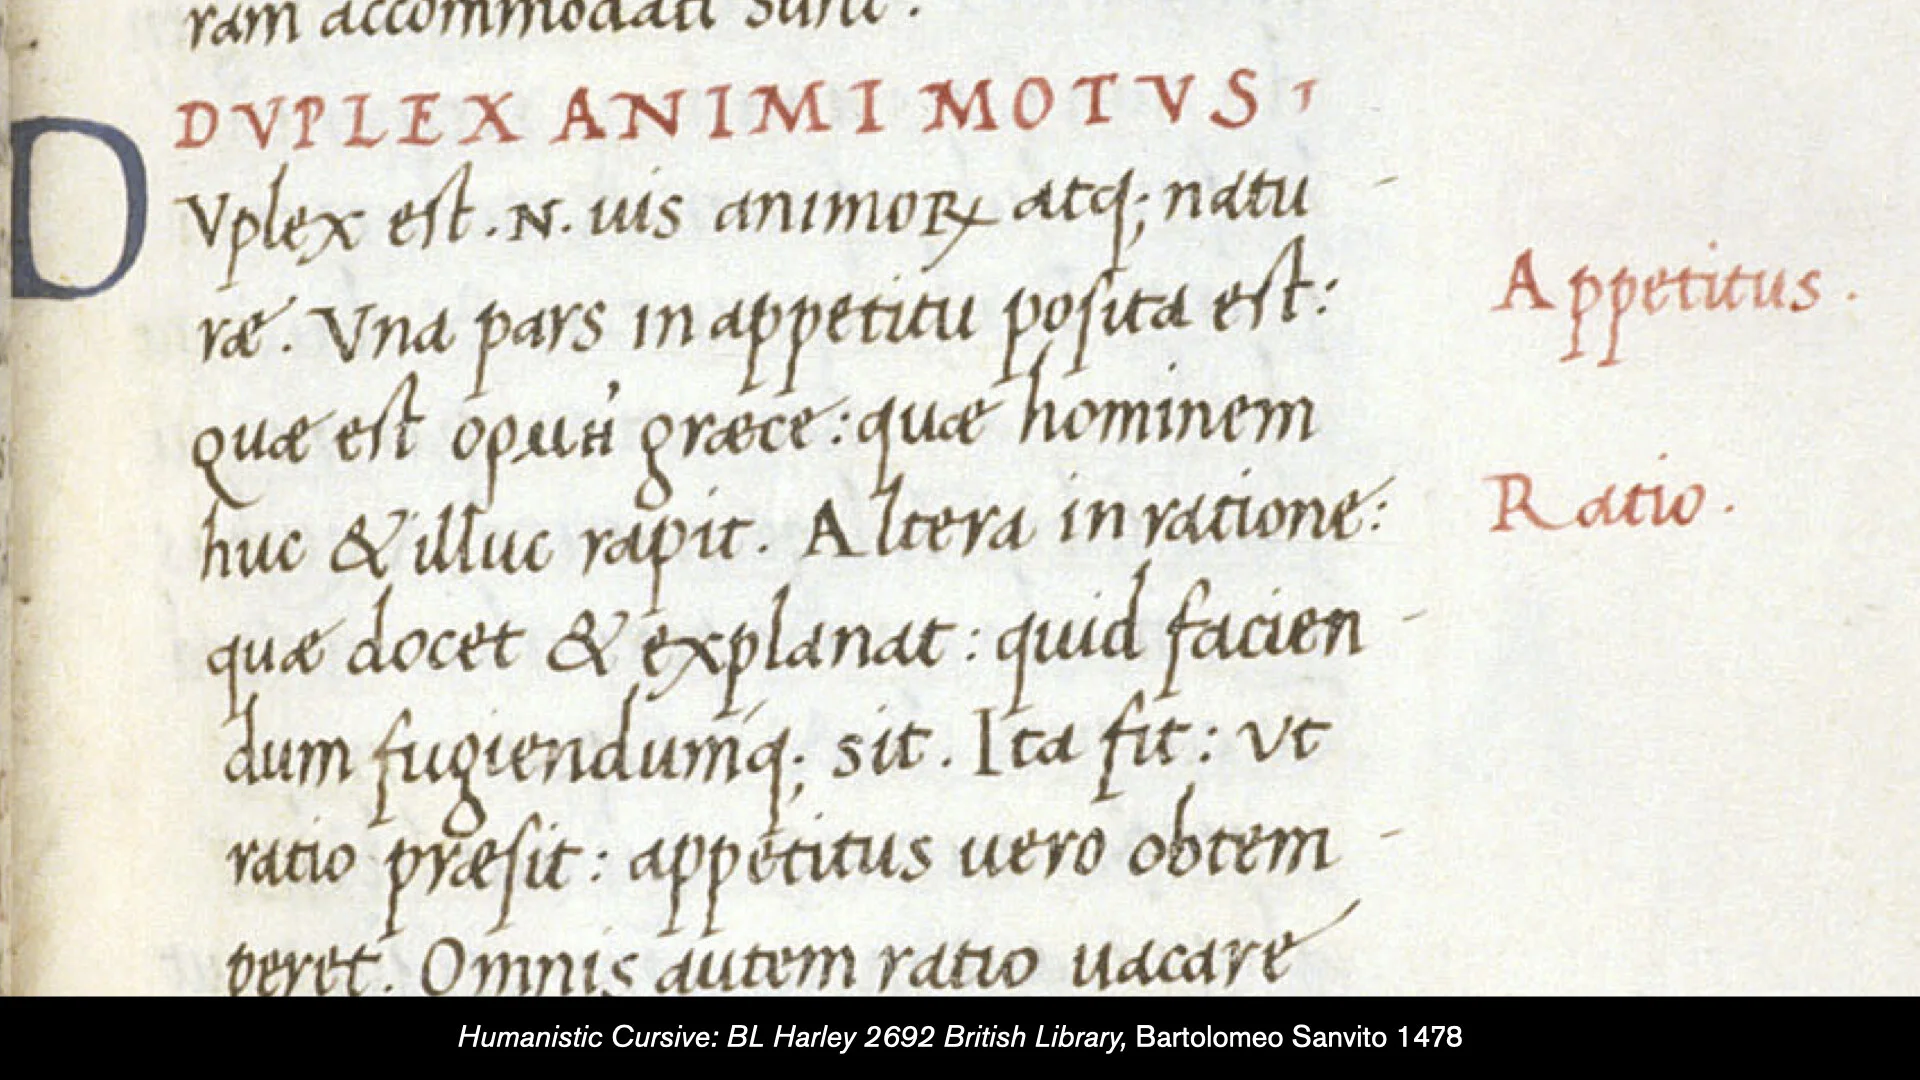 ram accommodati sunt.
DVPLEX ANIMI MOTVS,
DVplex est .N. uis animoꝝ atq; natu-
ræ. Vna pars in appetitu posita est:
Appetitus.
quæ est ορμή græce: quæ hominem
huc & illuc rapit. Altera in ratione:
Ratio.
quæ docet & explanat: quid facien-
dum fugiendumq; sit. Ita fit: ut
ratio præsit: appetitus uero obtem-
peret. Omnis autem ratio uacare
Humanistic Cursive: BL Harley 2692 British Library, Bartolomeo Sanvito 1478